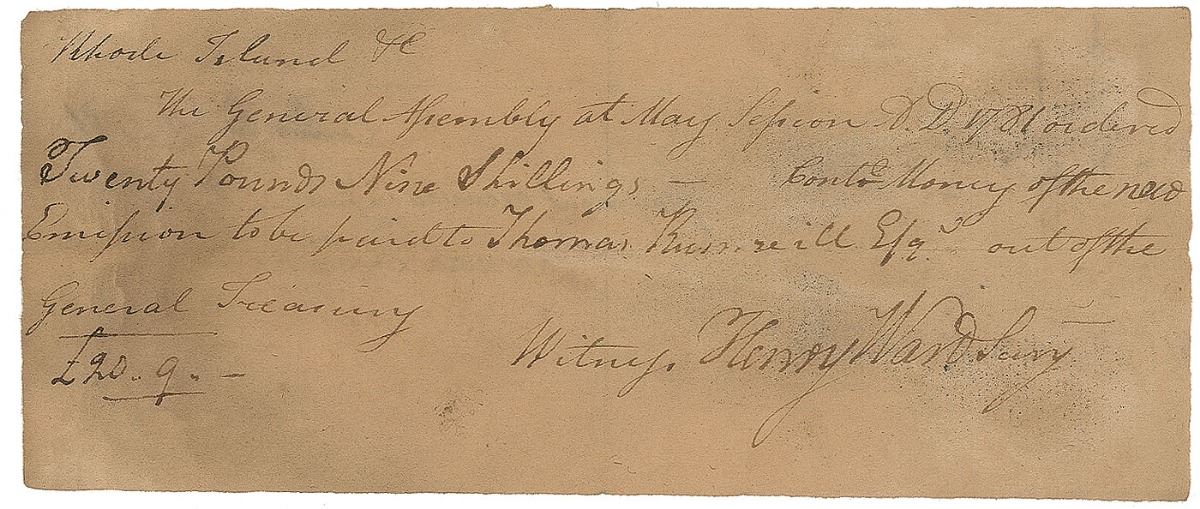 Rhode Island &c
The General Assembly at May Session A.D. 1781 ordered
Twenty Pounds Nine Shillings — Contl. Money of the new
Emission to be paid to Thomas Rumreill Esqr. out of the
General Treasury
Witness Henry Ward Secry
£20. 9. —